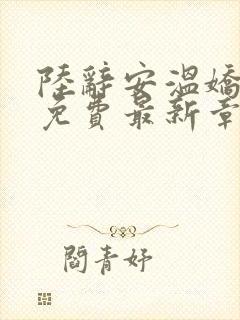 陸辭安溫嬌
免費最新章
閻青妤